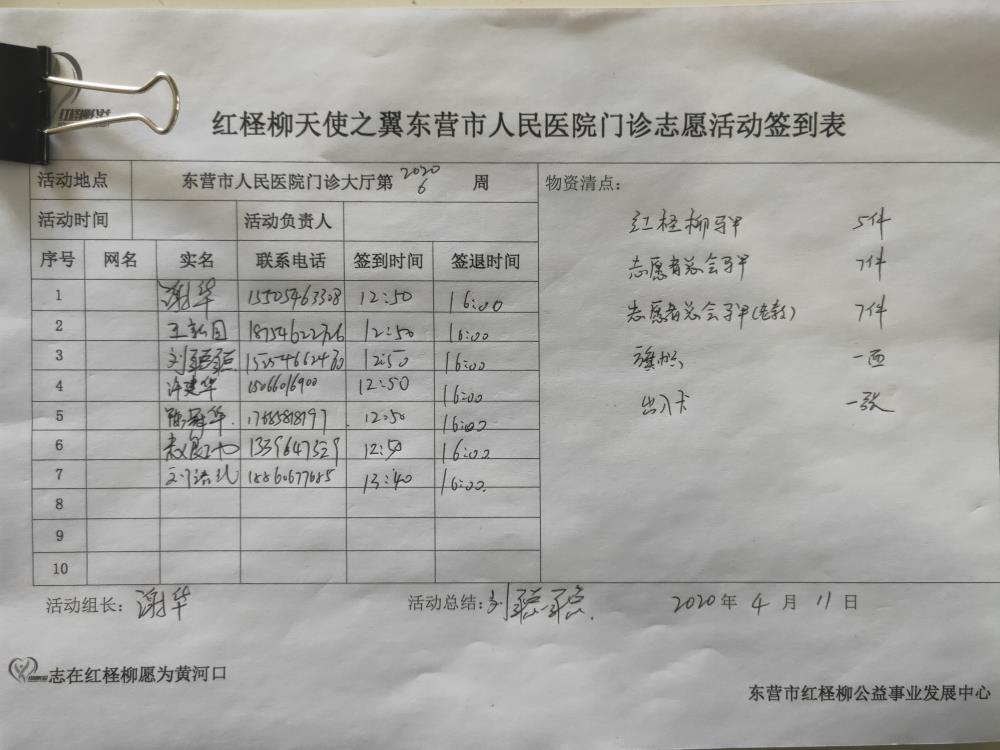 红柽柳天使之翼东营市人民医院门诊志愿活动签到表
活动地点 东营市人民医院门诊大厅第 2020 6 周
活动时间 活动负责人
序号 网名 实名 联系电话 签到时间 签退时间
1 谢华 15505463308 12:50 16:00
2 12:50 16:00
3 刘聪聪 12:50 16:00
4 许建华 15066016900 12:50 16:00
5 12:50 16:00
6 1339647329 12:50 16:00
7 18860677685 13:40 16:00
8
9
10
物资清点:
红柽柳马甲 5件
志愿者总会马甲 7件
志愿者总会马甲(老款) 7件
旗帜 一面
出入卡 一张
活动组长: 谢华 活动总结: 刘聪聪. 2020 年 4 月 11 日
志在红柽柳愿为黄河口
东营市红柽柳公益事业发展中心